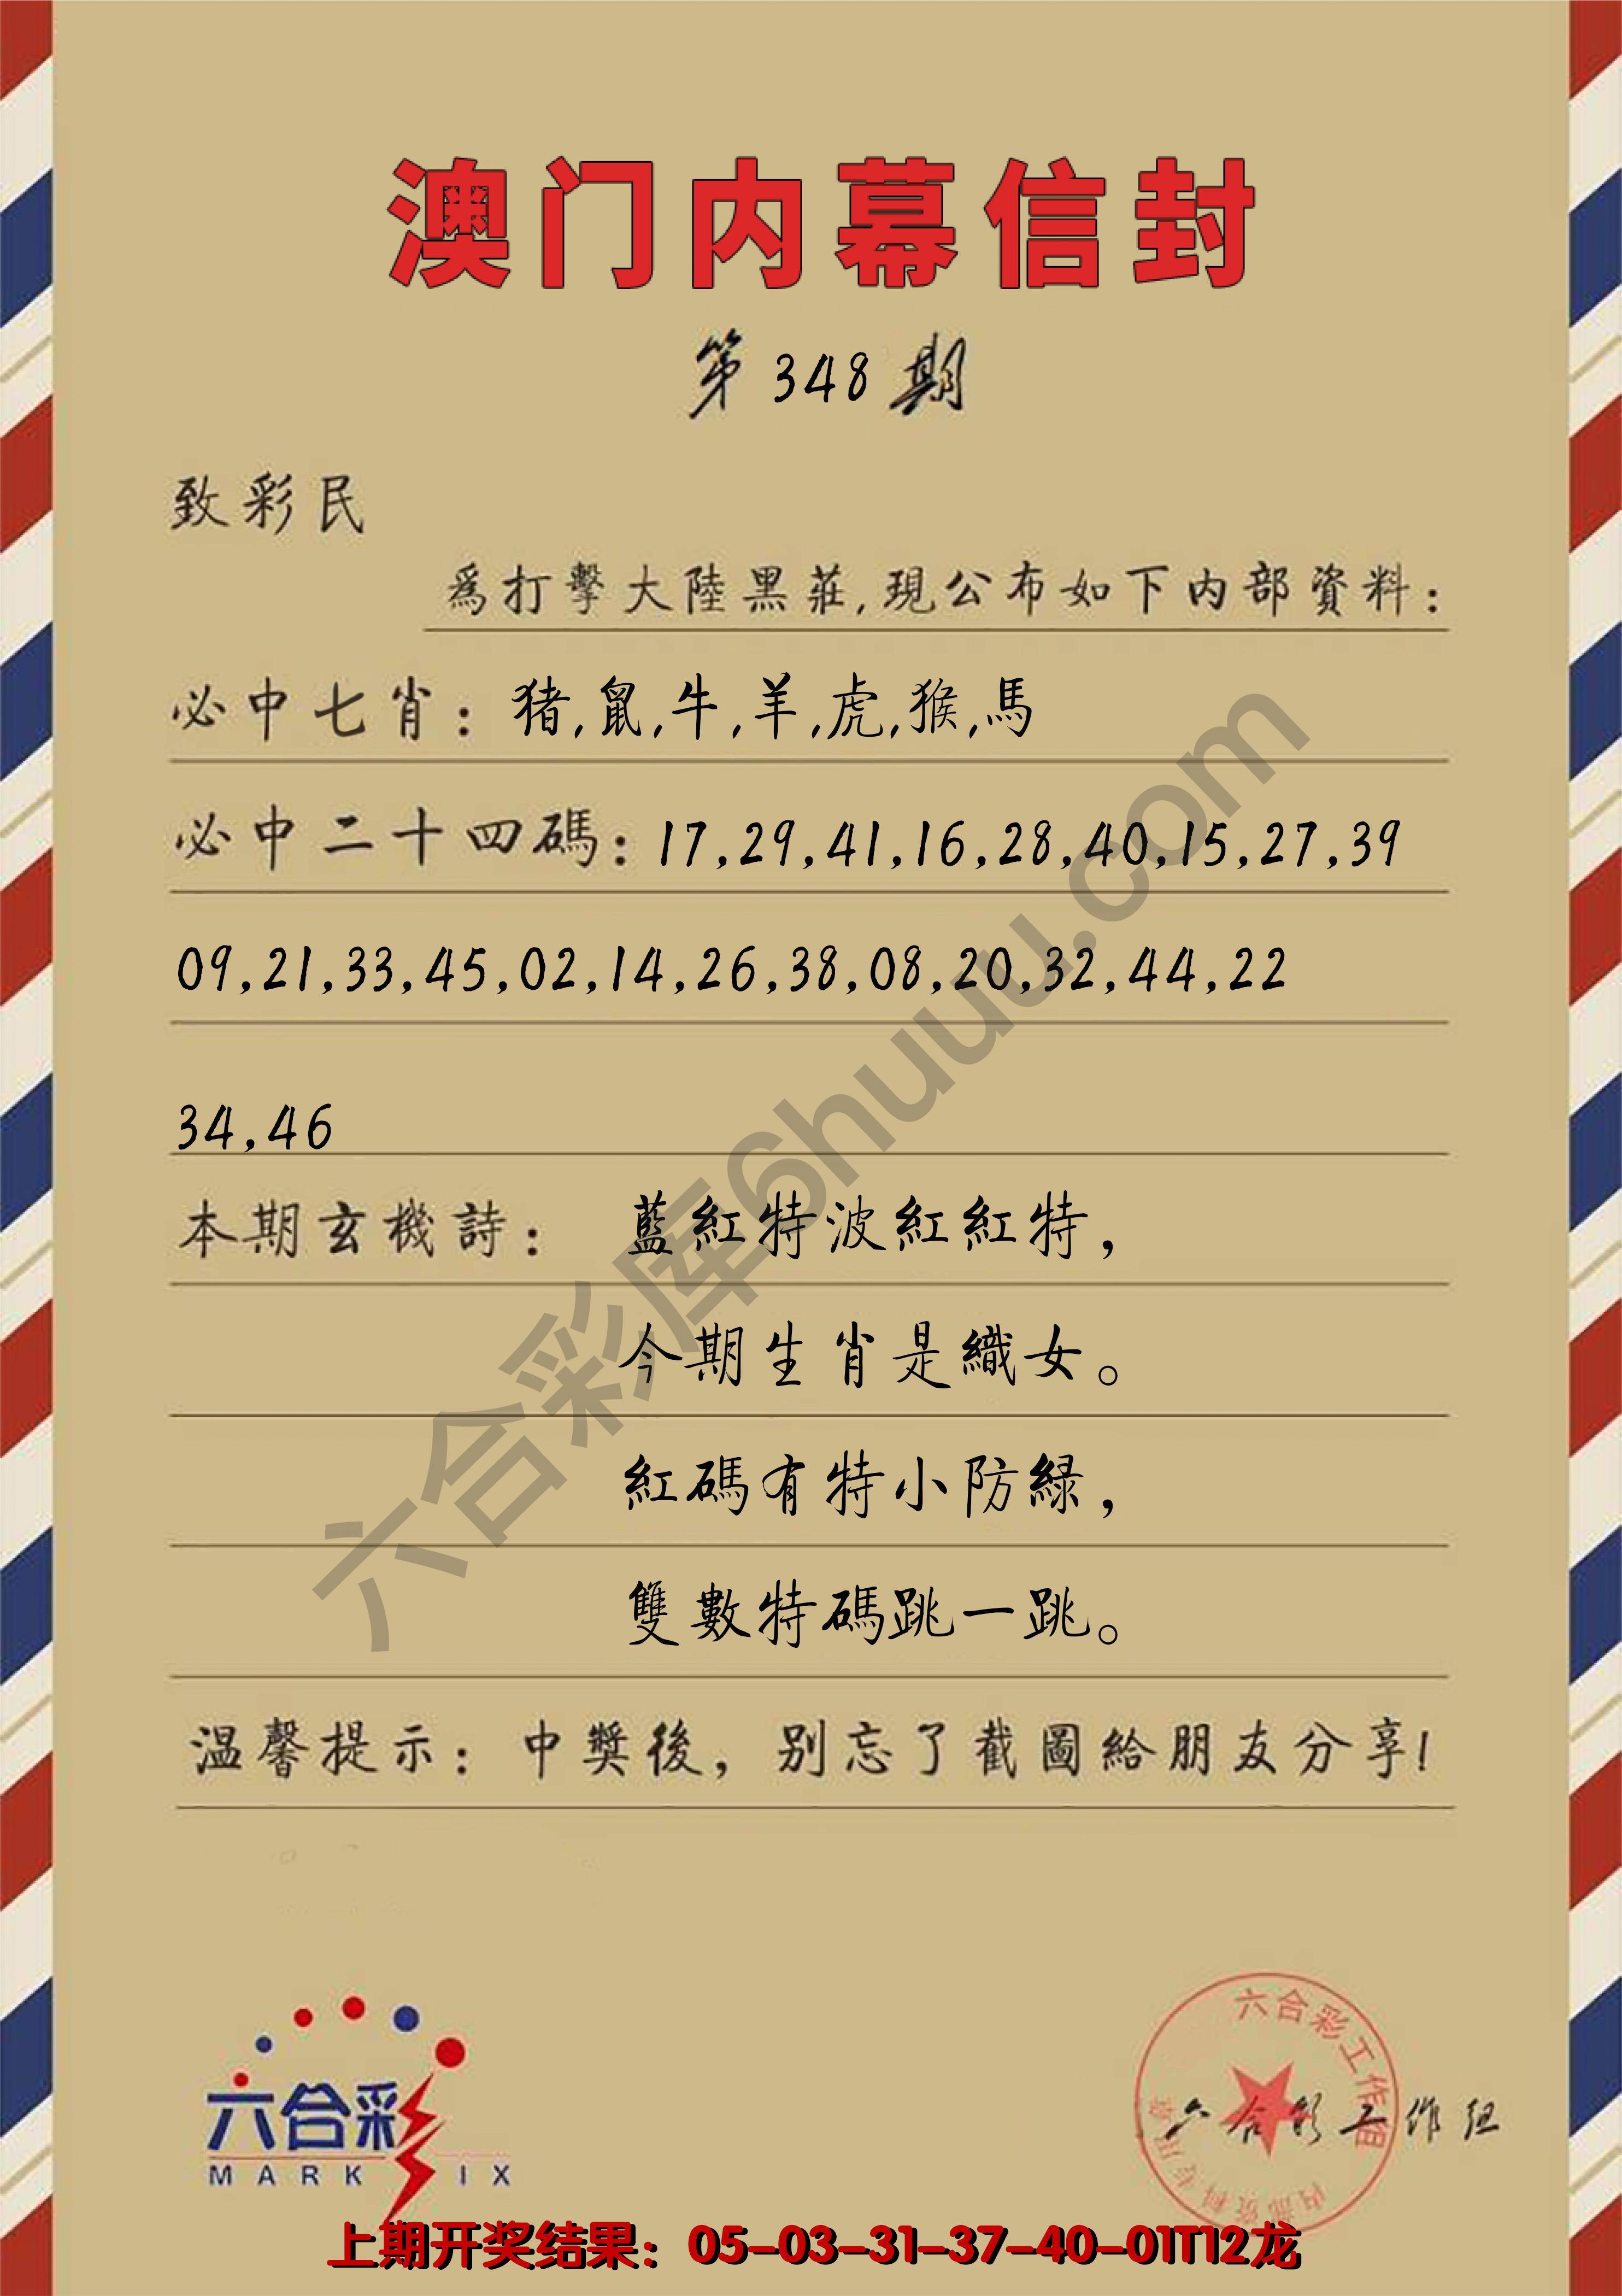 澳门内幕信封
第348期
致彩民
爲打擊大陸黑莊,現公布如下内部資料:
必中七肖: 猪,鼠,牛,羊,虎,猴,馬
必中二十四碼: 17,29,41,16,28,40,15,27,39
09,21,33,45,02,14,26,38,08,20,32,44,22
34,46
本期玄機詩: 藍紅特波紅紅特,
今期生肖是織女。
紅碼有特小防緑,
雙數特碼跳一跳。
温馨提示: 中獎後, 别忘了截圖給朋友分享!
六合彩库6huuu.com
六合彩
MARK SIX
六合彩工作组
内部资料专用章
六合彩工作组
上期开奖结果: 05-03-31-37-40-01T12龙